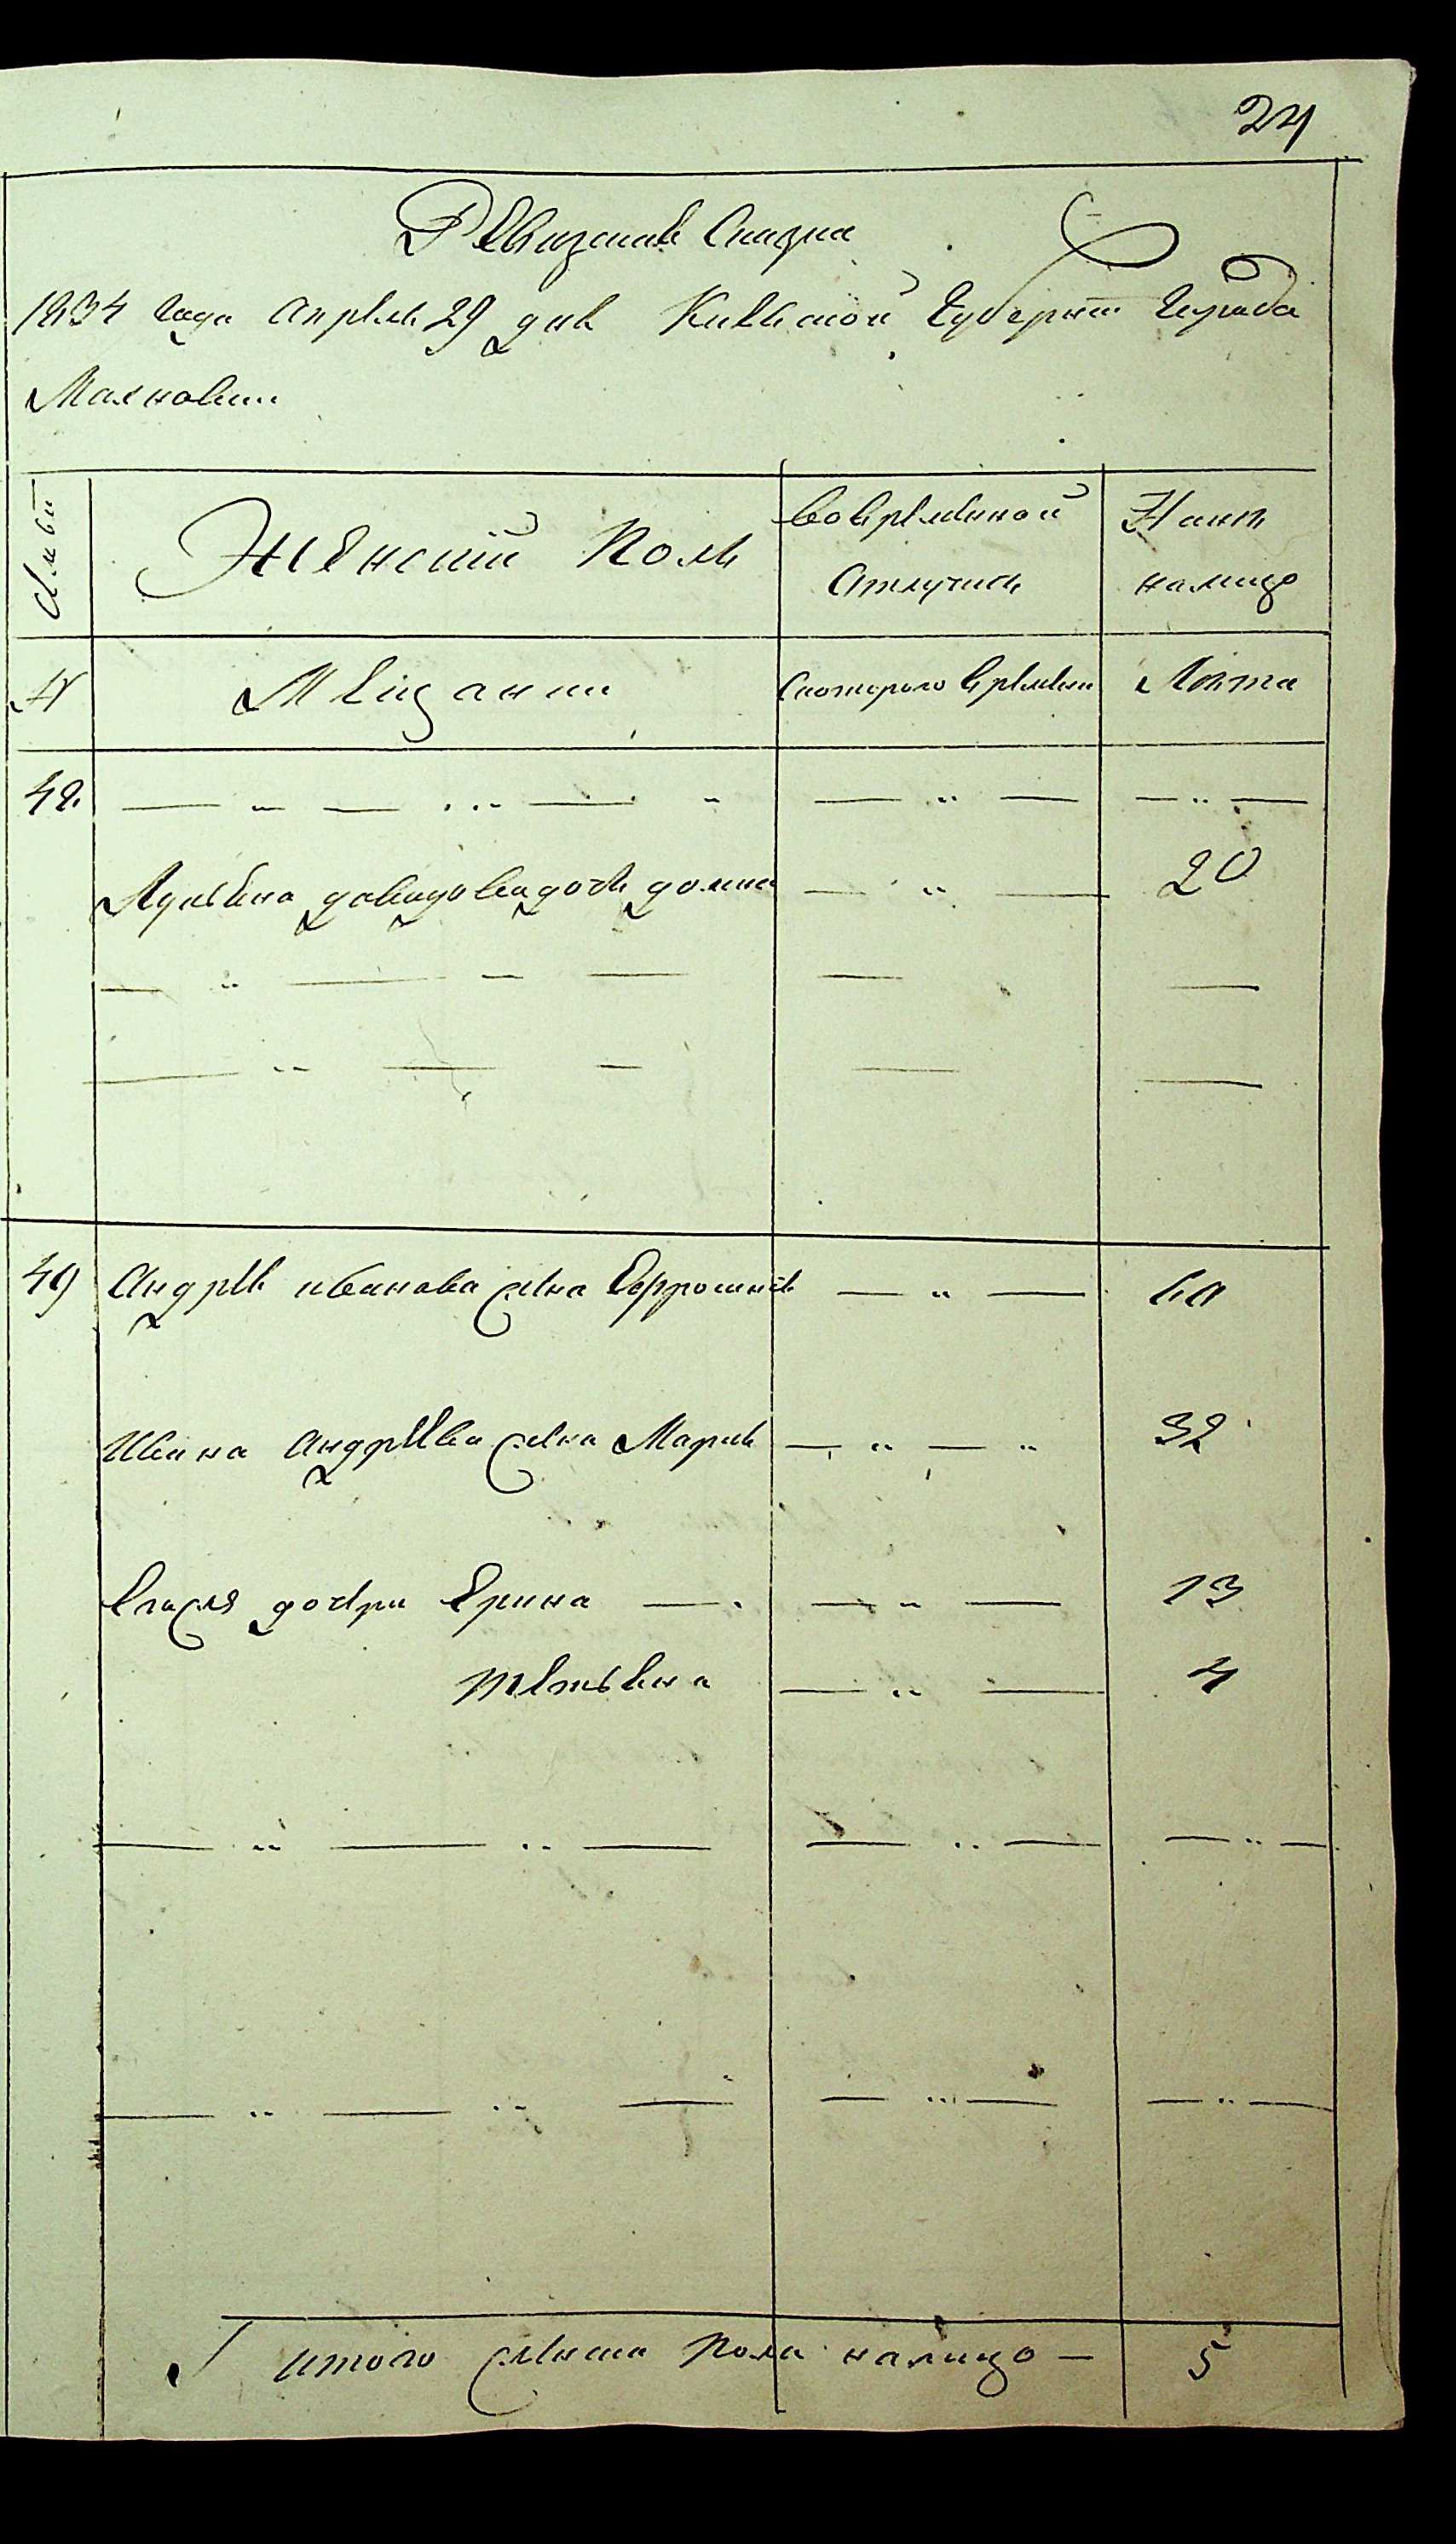 24
Ревизская Сказка
1834 года апреля 29 дня Киевской Губернии города
Махновки
Семьи Женский Полъ вовременной Ныне
Отлучке налицо
№ Мещанки скоторого времени Лета
48.
давидова дочь домна 20
49 Андрея иванова жена Ефросинья 60
Ивана андреева жена Мария 32
Ево дочери Ерина 13
Тетьяна 4
итого женска пола налицо — 5